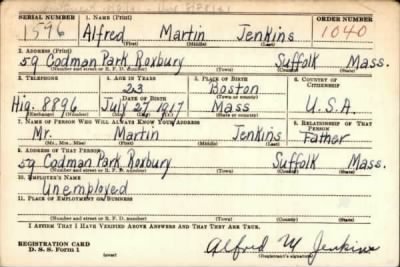 SERIAL NUMBER 1. NAME (Print) ORDER NUMBER
1596 Alfred Martin Jenkins 1040
(First) (Middle) (Last)
2. ADDRESS (Print)
59 Codman Park Roxbury Suffolk Mass.
(Number and street or R. F. D. number) (Town) (County) (State)
3. TELEPHONE 4. AGE IN YEARS 5. PLACE OF BIRTH 6. COUNTRY OF CITIZENSHIP
23 Boston
DATE OF BIRTH (Town or county)
Hig. 8896 July 27 1917 Mass U.S.A.
(Exchange) (Number) (Mo.) (Day) (Yr.) (State or country)
7. NAME OF PERSON WHO WILL ALWAYS KNOW YOUR ADDRESS 8. RELATIONSHIP OF THAT PERSON
Mr. Martin Jenkins Father
(Mr., Mrs., Miss) (First) (Middle) (Last)
9. ADDRESS OF THAT PERSON
59 Codman Park Roxbury Suffolk Mass.
(Number and street or R. F. D. number) (Town) (County) (State)
10. EMPLOYER'S NAME
Unemployed
11. PLACE OF EMPLOYMENT OR BUSINESS
(Number and street or R. F. D. number) (Town) (County) (State)
I AFFIRM THAT I HAVE VERIFIED ABOVE ANSWERS AND THAT THEY ARE TRUE.
REGISTRATION CARD
D. S. S. Form 1 (over) Alfred M Jenkins
(Registrant's signature)